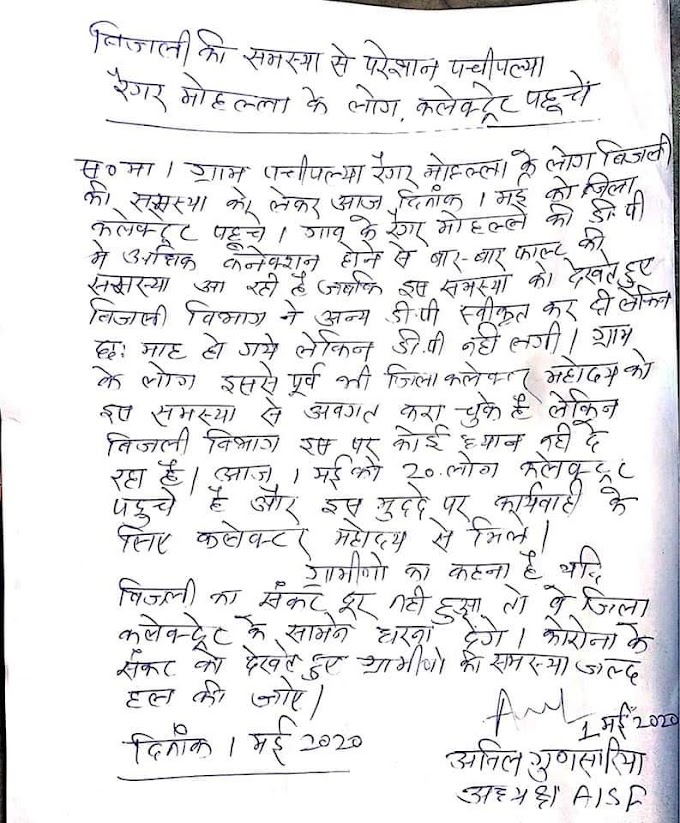 बिजाली की समस्या से परेशान पचीपल्या
रैगर मोहल्ला के लोग, कलेक्ट्रेट पहूचें
स० मा । ग्राम पचीपल्या रैगर मोहल्ला के लोग बिजली
की समस्या को लेकर आज दिनांक 1 मई को जिला
कलेक्ट्रट पहूचे । गाव के रैगर मोहल्ले की डी.पी
मे अधिक कनेक्शन होने से बार-बार फाल्ट की
समस्या आ रही है जबकि इस समस्या को देखते हुए
बिजाली विभाग ने अन्य डी.पी स्वीकृत कर दी लेकिन
छः माह हो गये लेकिन डी.पी नही लगी । ग्राम
के लोग इससे पूर्व भी जिला कलेक्टर महोदय को
इस समस्या से अवगत करा चुके है लेकिन
बिजली विभाग इस पर कोई ध्यान नही दे
रहा है । आज 1 मई को 20 लोग कलेक्ट्रट
पहुचे है और इस मुददे पर कार्यवाही के
लिए कलेक्टर महोदय से मिले ।
ग्रामीणो का कहना है यदि
बिजली का संकट दूर नही हुआ तो वे जिला
कलेक्ट्रेट के सामने धरना देगे । कोरोना के
संकट को देखते हुए ग्रामीणो की समस्या जल्द
हल की जाए ।
1 मई 2020
दिनांक 1 मई 2020
अनिल गुणसारिया
अध्यक्ष AISF